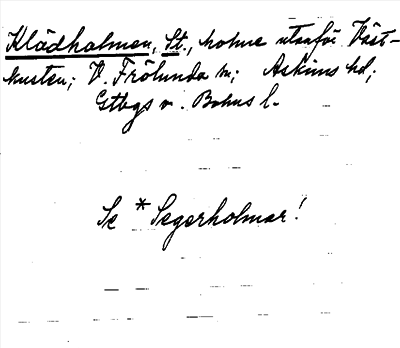 Klädholmen, St., holme utanför Väst-
kusten; V. Frölunda sn; Askims hd;
Gtbgs o. Bohus l.
Se * Segerholmar!